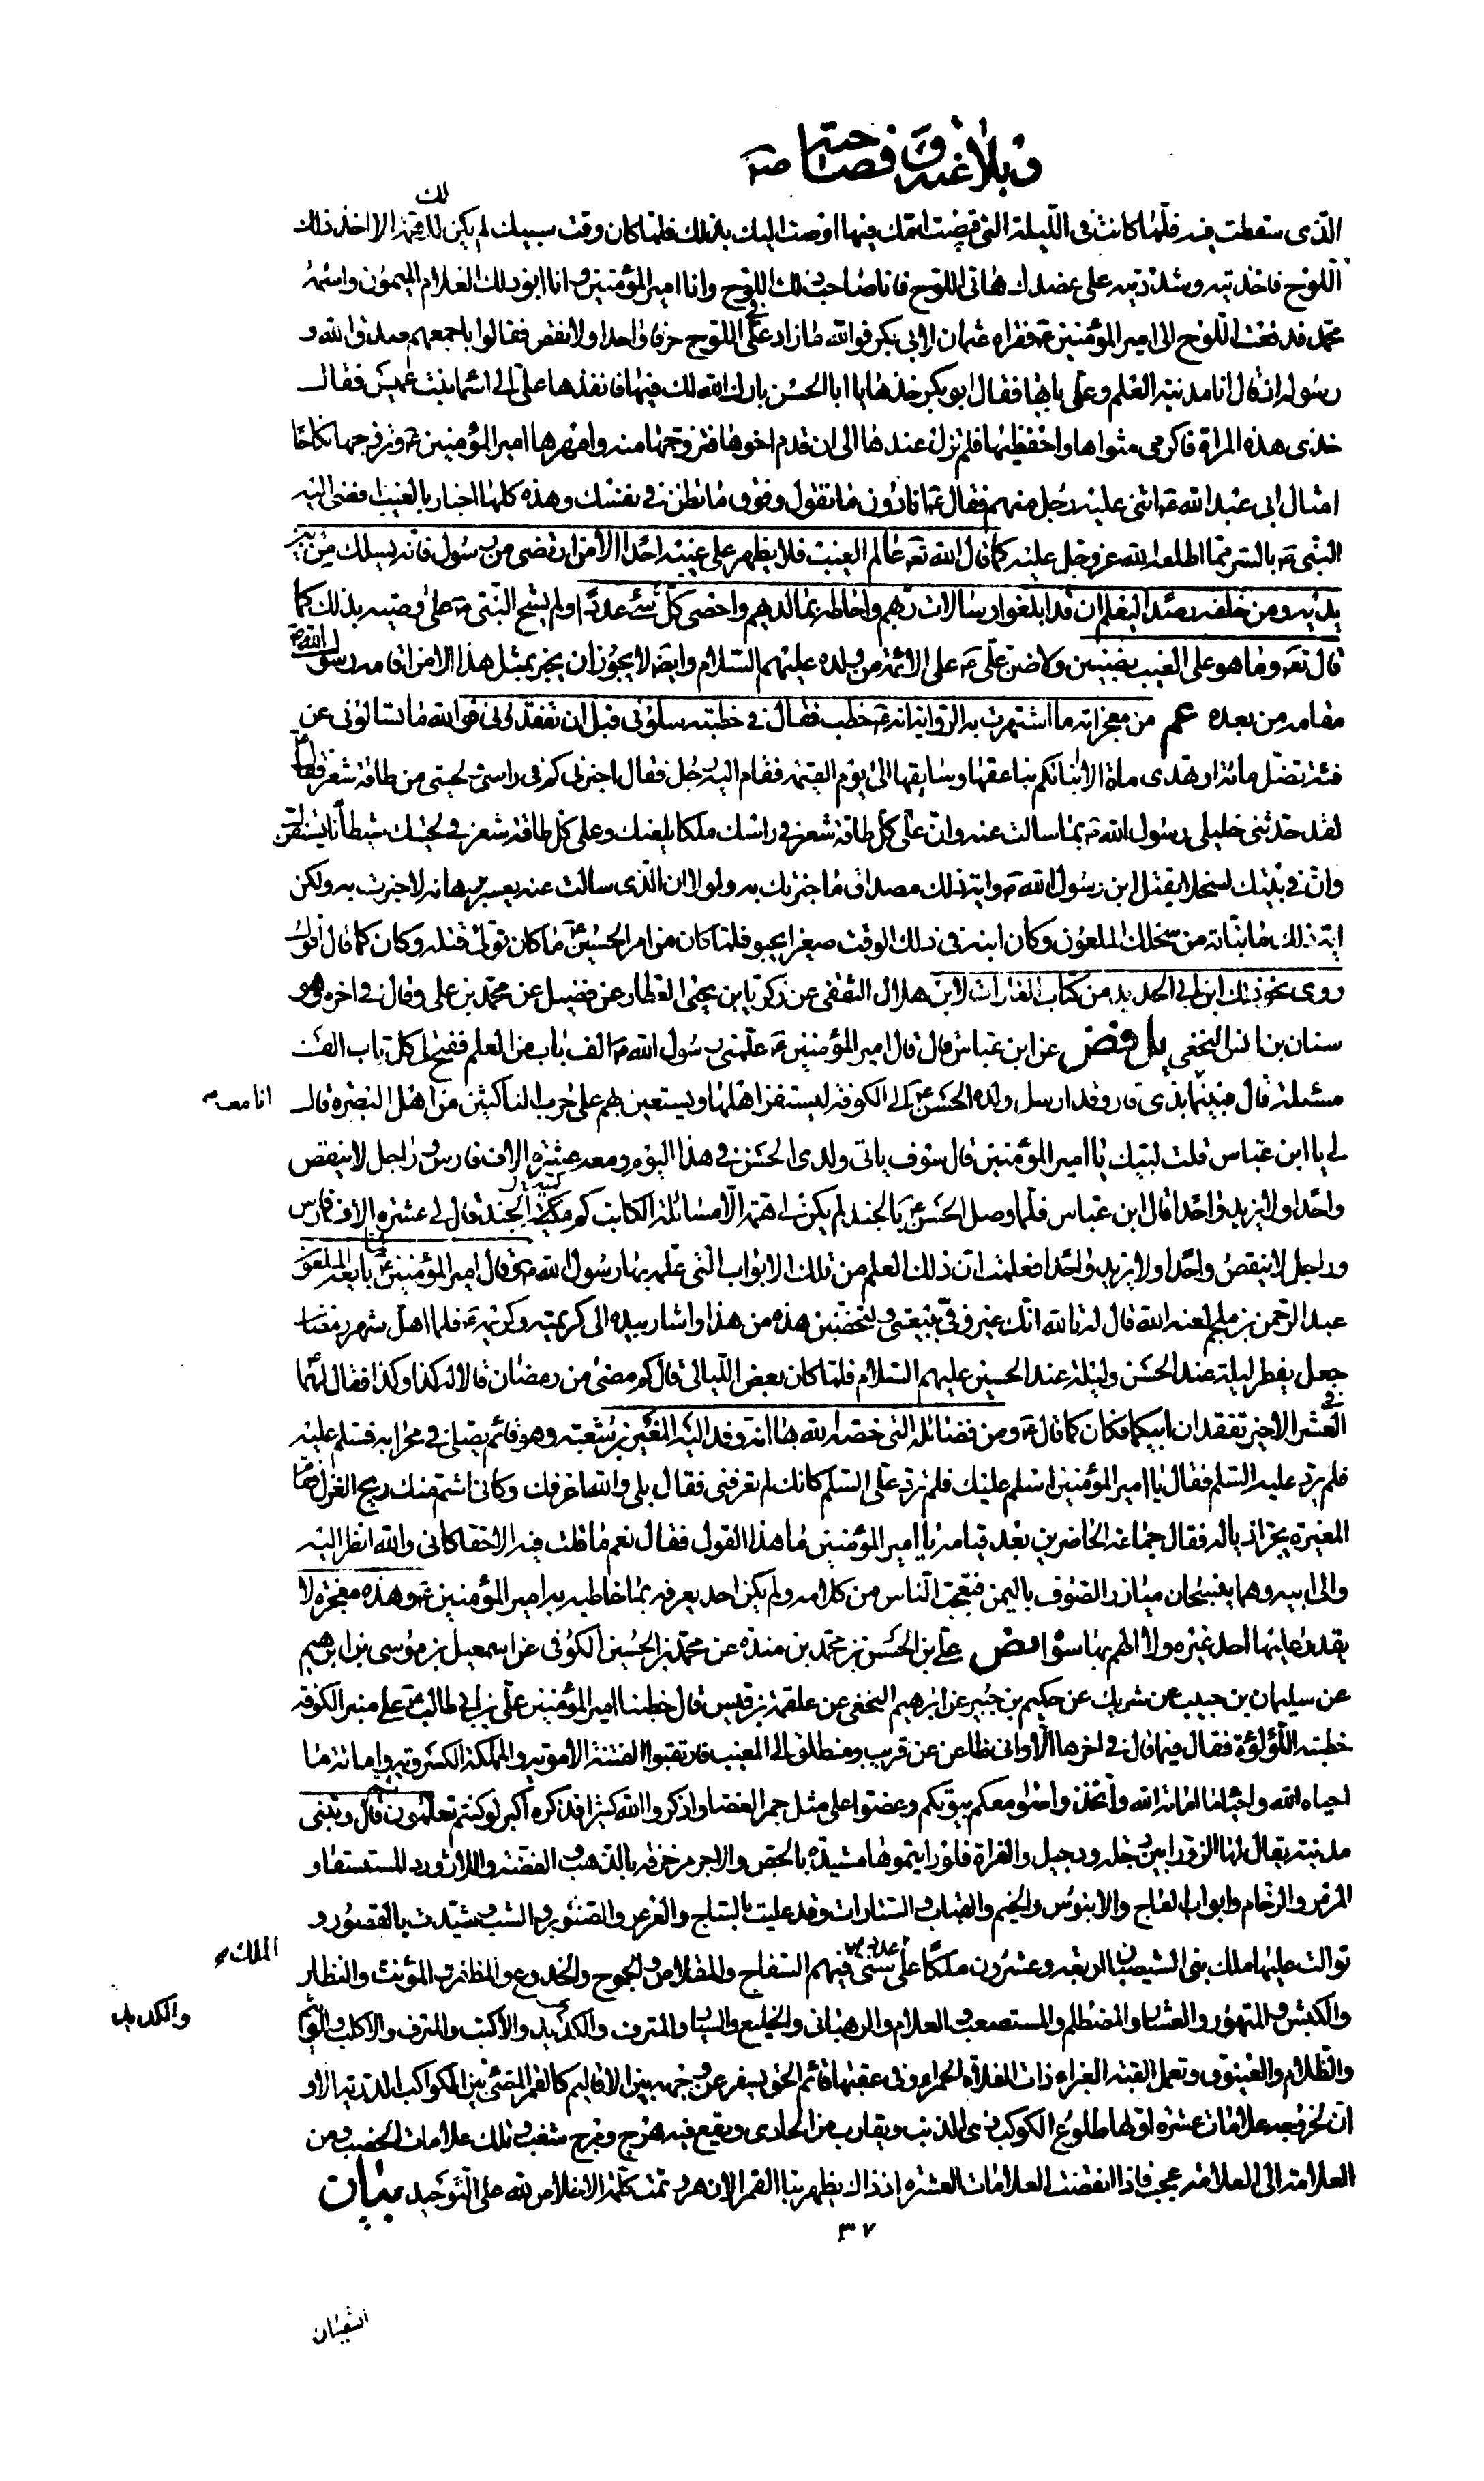 وبلاغته وفصاحته صه
لك
الذى سقطت فيه فلما كانت فى الليلة التى قبضت امك فيها اوصت اليك بذلك فلما كان وقت سبيك لم يكن لك همة الا اخذ ذلك
اللوح فاخذتيه وشددتيه على عضدك هاتى اللوح فانا صاحب ذلك اللوح وانا امير المؤمنين وانا ابو ذلك الغلام الميمون واسمه
محمد فدفعت اللوح الى امير المؤمنين ع فقراه عثمان لابى بكر فوالله ما زاد على فى اللوح حرفا واحدا ولا نقص فقالوا باجمعهم صدق الله و
رسوله اذ قال انا مدينة العلم وعلى بابها فقال ابو بكر خذها يا ابا الحسن بارك الله لك فيها فانفذها على الى اسما بنت عميس فقال
خذى هذه المراة فاكرمى مثواها واحفظيها فلم تزل عندها الى ان قدم اخوها فتزوجها منه وامهرها امير المؤمنين ع وتزوجها نكاحا
امثال ابى عبد الله ع اثنى عليه رجل منهم فقال ع انا دون ما تقول وفوق ما تظن فى نفسك وهذه كلها اخبار بالغيب افضى اليه
النبى ص بالسر مما اطلعه الله عز وجل عليه كما قال الله تع عالم الغيب فلا يظهر على غيبه احدا الا من ارتضى من رسول فانه يسلك من بين
يديه ومن خلفه رصدا ليعلم ان قد ابلغوا رسالات ربهم واحاط بما لديهم واحصى كل شئ عددا ولم يشح النبى ص على وصيه بذلك كما
قال تع وما هو على الغيب بضنين ولا ضن على ع على الائمة من ولده عليهم السلام وايضا لا يجوز ان يخبر بمثل هذا الا من اقامه رسول الله ص
مقامه من بعده عم من معجزاته ما اشتهرت به الرواية انه ع خطب فقال فى خطبته سلونى قبل ان تفقدونى فوالله ما تسالونى عن
فئة تضل مائة او تهدى ماة الا انباتكم بناعقها وسايقها الى يوم القيمة فقام اليه رجل فقال اخبرنى كم فى راسى ولحيتى من طاقة شعر فقال ع
لقد حدثنى خليلى رسول الله ص بما سالت عنه وان على كل طاقة شعر فى راسك ملكا يلعنك وعلى كل طاقة شعر فى لحيتك شيطانا يستفزك
وان فى بيتك لسخلا يقتل ابن رسول الله ص واية ذلك مصداق ما خبرتك به ولولا ان الذى سالت عنه يعسر برهانه لاخبرت به ولكن
اية ذلك ما نباته من سخلك الملعون وكان ابنه فى ذلك الوقت صغيرا يحبو فلما كان من امر الحسين ع ما كان تولى قتله وكان كما قال اقول
روى نحو ذلك ابن ابى الحديد من كتاب الغارات لابن هلال الثقفى عن زكريا بن يحيى العطار عن فضيل عن محمد بن على وقال فى اخره وهو
سنان بن انس النخعى يل فض عن ابن عباس قال قال امير المؤمنين ع علمنى رسول الله ص الف باب من العلم ففتح لى كل باب الف
مسئلة قال فبينما بذى قار وقد ارسل ولده الحسن ع الى الكوفة ليستفز اهلها ويستعين بهم على حرب الناكثين من اهل البصرة قال
انا معه ص
لى يا ابن عباس قلت لبيك يا امير المؤمنين قال سوف ياتى ولدى الحسن فى هذا اليوم ومعه عشرة الاف فارس وراجل لا ينقص
واحدا ولا يزيد واحدا قال ابن عباس فلما وصل الحسن ع بالجند لم يكن لى همة الا مسائلة الكاتب كم كمية الجند قال لى عشرة الاف فارس
وراجل لا ينقص واحدا ولا يزيد واحدا فعلمت ان ذلك العلم من تلك الابواب التى علمه بها رسول الله ص وقال امير المؤمنين ع لما بايعه الملعون
عبد الرحمن بن ملجم لعنه الله قال له تالله انك غير وفى ببيعتى ولتخضبن هذه من هذا واشار بيده الى كريمته وكريمه ع فلما اهل شهر رمضان
جعل يفطر ليلة عند الحسن وليلة عند الحسين عليهم السلام فلما كان بعض الليالى قال كم مضى من رمضان قالا له كذا وكذا فقال لهما
فى
العشر الاخير تفقدان ابيكما فكان كما قال ع ومن فضائله التى خصه الله بها انه وفد اليه المغيرة بن شعبة وهو قائم يصلى فى محرابه فسلم عليه
فلم يرد عليه السلم فقال يا امير المؤمنين اسلم عليك فلم ترد على السلم كانك لم تعرفنى فقال بلى والله اعرفك وكانى اشم منك ريح الغزل فقام
المغيرة يجر اذياله فقال جماعة الحاضرين بعد قيامه يا امير المؤمنين ما هذا القول فقال نعم ما قلت فيه الا حقا كانى والله انظر اليه
والى ابيه وهما ينسجان ميازر الصوف باليمن فتعجب الناس من كلامه ولم يكن احد يعرفه بما خاطبه به امير المؤمنين ع وهذه معجزة لا
يقدر عليها احد غيره ولا الهم بها سواه نص على بن الحسن بن محمد بن منده عن محمد بن الحسين الكوفى عن اسمعيل بن موسى بن ابرهيم
عن سليمان بن حبيب عن شريك عن حكيم بن جبير عن ابرهيم النخعى عن علقمة بن قيس قال خطبنا امير المؤمنين على بن ابى طالب ع على منبر الكوفة
خطبته اللؤلؤة فقال فيما قال فى اخرها الا وانى ظاعن عن قريب ومنطلق الى المغيب فارتقبوا الفتنة الاموية والمملكة الكسروية واماتة ما
احياه الله واحياء ما اماته الله واتخذوا صوامعكم بيوتكم وعضوا على مثل جمر الغضا واذكروا الله كثيرا فذكره اكبر لو كنتم تعلمون ثم قال وتبنى
مدينة يقال لها الزورا بين دجلة ودجيل والفراة فلو رايتموها مشيدة بالجص والاجر مزخرفة بالذهب والفضة واللازورد المستسقا و
المرمر والرخام وابواب العاج والابنوس والخيم والقباب والستارات وقد عليت بالساج والعرعر والصنوبر والشب وشيدت بالقصور و
توالت عليها ملك بنى الشيصبان اربعة وعشرون ملكا على عدد سنى فيهم السفاح والمقلاص والجموح والخدوع والمظفر والمؤنث والنظار
الملك ص
والكبش والمتهور والعشار والمضطلم والمستصعب والعلام والرهبانى والخليع والسيار والمترف والكديد والاكتب والمترف والاكلب والوثيم
والكديد
والظلام والعينوق وتعمل القبة الغبراء ذات الفلاة الحمراء وفى عقبها قائم الحق يسفر عن وجهه بين الاقاليم كالقمر المضئ بين الكواكب الدرية الا و
ان لخروجه علامات عشرة اولها طلوع الكوكب ذى الذنب ويقارب من الحادى ويقع فيه هرج ومرج وشغب وتلك علامات الخصب ومن
العلامة الى العلامة عجب فاذا انقضت العلامات العشرة اذ ذاك يظهر بنا القمر الازهر وتمت كلمة الاخلاص لله على التوحيد بيان
٣٧
الشيصبان